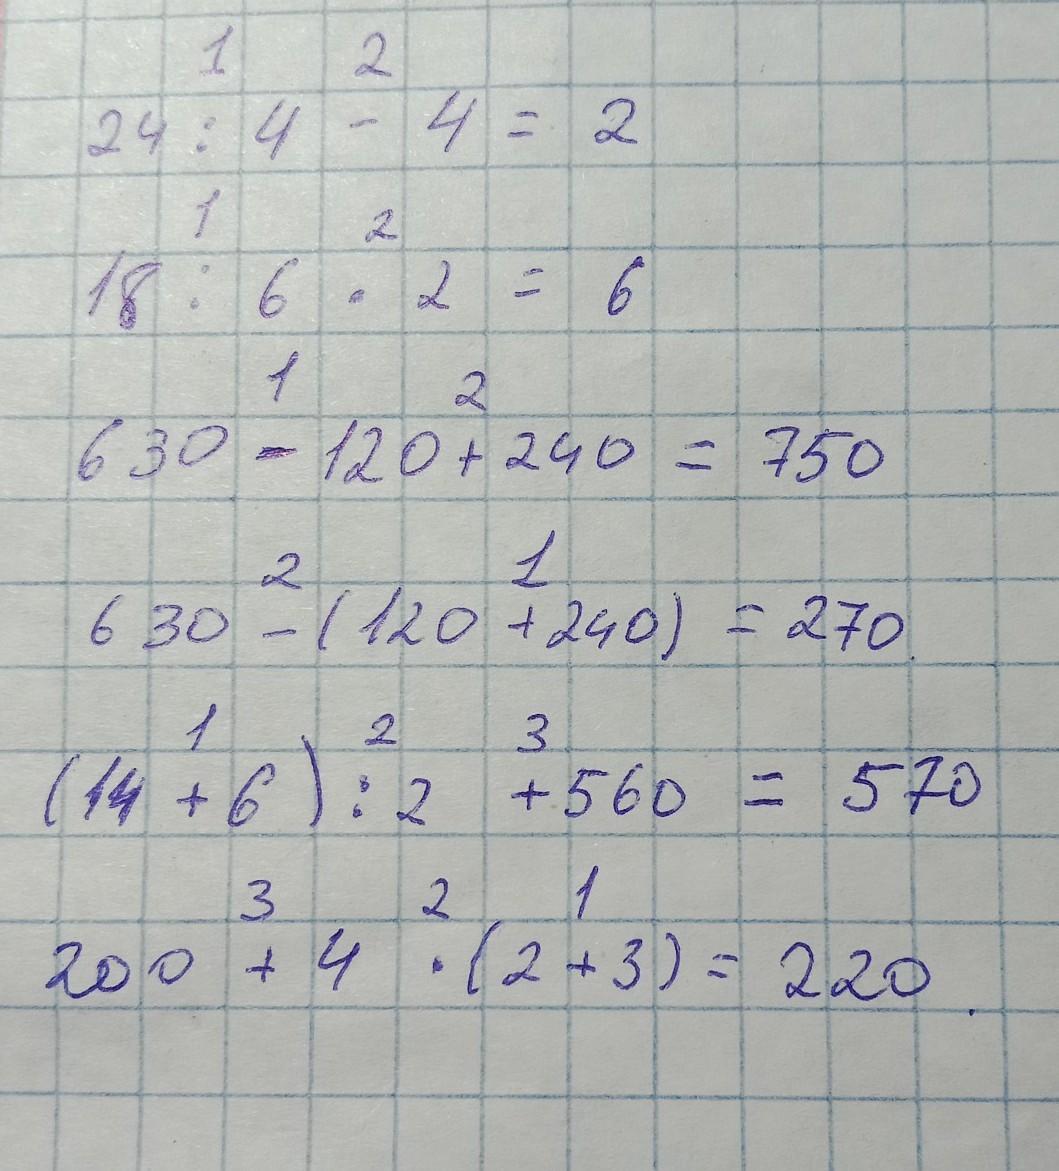 1 2
24 : 4 - 4 = 2
1 2
18 : 6 · 2 = 6
1 2
630 - 120 + 240 = 750
2 1
630 - (120 + 240) = 270.
1 2 3
(14 + 6) : 2 + 560 = 570
3 2 1
200 + 4 · (2 + 3) = 220.